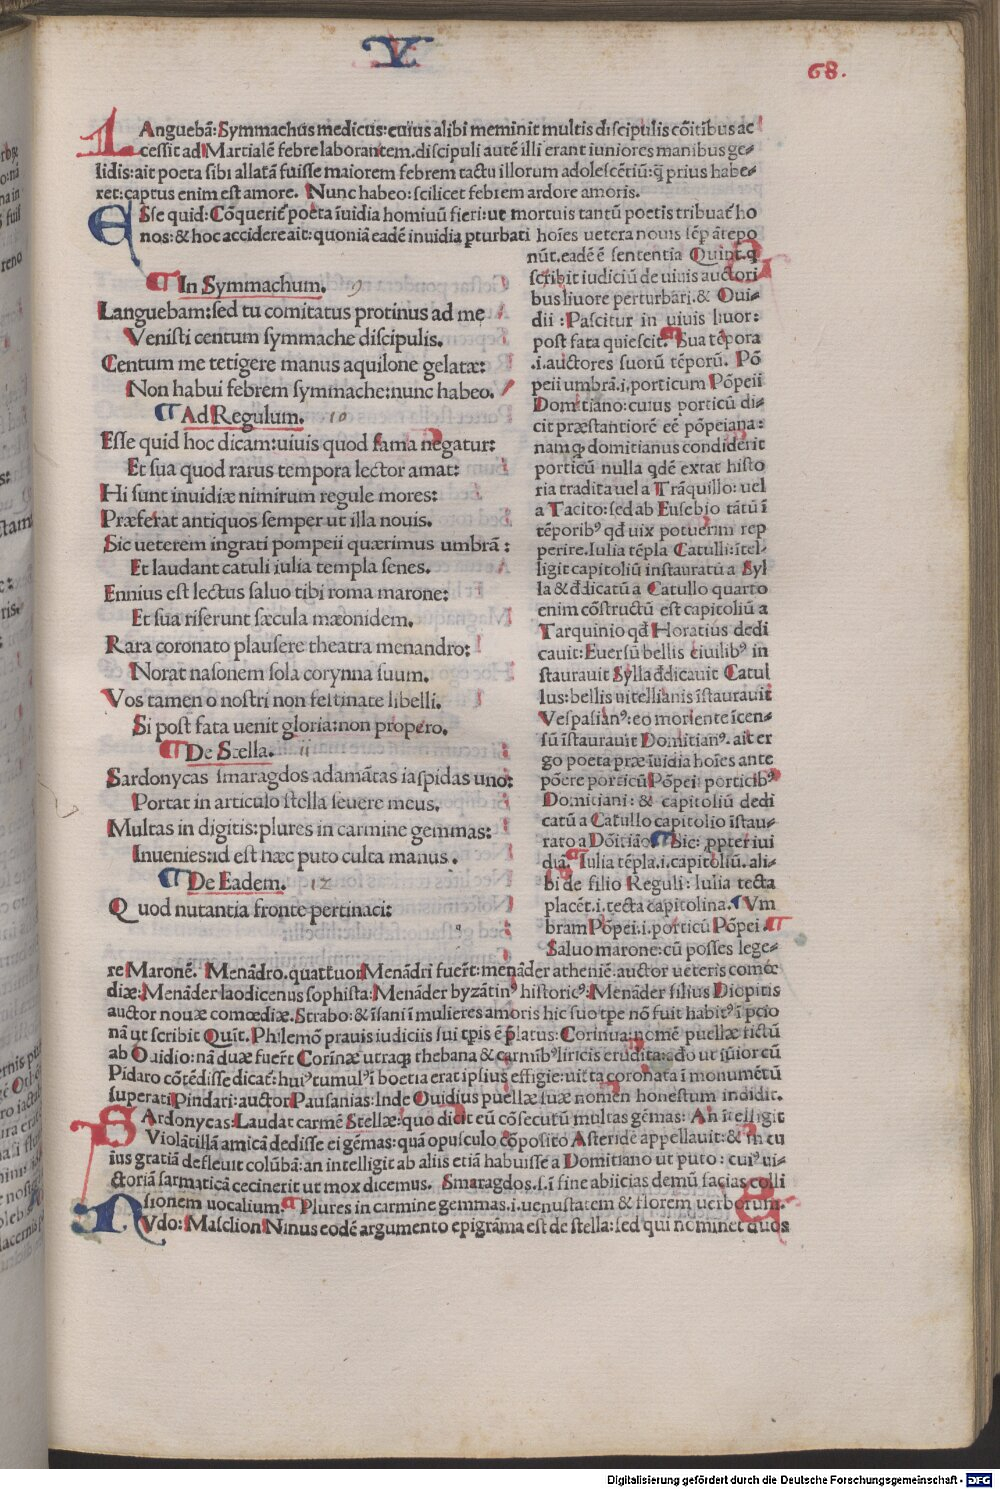 V
68.
LAnguebã: Symmachus medicus: cuius alibi meminit multis discipulis cõitibus ac
cessit ad Martialẽ febre laborantem. discipuli autẽ illi erant iuniores manibus ge-
lidis: ait poeta sibi allatã fuisse maiorem febrem tactu illorum adolescẽtiũ: q̃ prius habe-
ret: captus enim est amore. Nunc habeo: scilicet febrem ardore amoris.
ESse quid: Cõquerit᷑ poeta ĩuidia homiuũ fieri: ut mortuis tantũ poetis tribuat᷑ ho
nos: & hoc accidere ait: quoniã eadẽ inuidia ꝑturbati hoĩes uetera nouis sẽꝑ ãtepo
nũt. eadẽ ẽ sententia Quint. q
scribit iudiciũ de uiuis auctori
bus liuore perturbari. & Oui-
dii: Pascitur in uiuis liuor:
post fata quiescit. Sua tẽpora
.i. auctores suorũ tẽporũ. Põ
peii umbrã. i. porticum Põpeii
Domitiano: cuius porticũ di-
cit præstantiorẽ eẽ põpeiana:
namq; domitianus condiderit
porticũ nulla qdẽ extat histo
ria tradita uel a Trãquillo: uel
a Tacito: sed ab Eusebio tãtũ ĩ
tẽporibꝰ qđ uix potuerim rep
perire. Iulia tẽpla Catulli: ĩtel-
ligit capitoliũ instauratũ a Syl
la & đdicatũ a Catullo quarto
enim cõstructũ est capitoliũ a
Tarquinio qđ Horatius dedi
cauit: Euersũ bellis ciuilibꝰ in
staurauit Sylla đdicauit Catul
lus: bellis uitellianis ĩstaurauit
Vespasianꝰ: eo moriente ĩcen-
sũ ĩstaurauit Domitianꝰ. ait er
go poeta præ ĩuidia hoĩes ante
põere porticũ Põpei porticibꝰ
Domitiani: & capitoliũ dedi
catũ a Catullo capitolio ĩstau-
rato a Dõitião. Sic: ꝓpter iui
diã. Iulia tẽpla. i. capitoliũ. ali-
bi de filio Reguli: Iulia tecta
placẽt. i. tecta capitolina. Vm
bram Põpei. i. porticũ Põpei.
Saluo marone: cũ posses lege-
In Symmachum. 9
Languebam: sed tu comitatus protinus ad me
Venisti centum symmache discipulis.
Centum me tetigere manus aquilone gelatæ:
Non habui febrem symmache: nunc habeo.
Ad Regulum. 10
Esse quid hoc dicam: uiuis quod fama negatur:
Et sua quod rarus tempora lector amat:
Hi sunt inuidiæ nimirum regule mores:
Præferat antiquos semper ut illa nouis.
Sic ueterem ingrati pompeii quærimus umbrã:
Et laudant catuli iulia templa senes.
Ennius est lectus saluo tibi roma marone:
Et sua riserunt sæcula mæonidem.
Rara coronato plausere theatra menandro:
Norat nasonem sola corynna suum.
Vos tamen o nostri non festinate libelli.
Si post fata uenit gloria: non propero.
De Stella. ii
Sardonycas smaragdos adamãtas iaspidas uno:
Portat in articulo stella seuere meus.
Multas in digitis: plures in carmine gemmas:
Inuenies: id est hæc puto culta manus.
De Eadem. 12
Quod nutantia fronte pertinaci:
re Maronẽ. Menãdro. quattuor Menãdri fuer̃t: menãder atheniẽ. auctor ueteris comœ
diæ: Menãder laodicenus sophista: Menãder byzãtinꝰ historicꝰ: Menãder filius Diopitis
auctor nouæ comœdiæ. Strabo: & ĩsani ĩ mulieres amoris hic suo tpe nõ fuit habitꝰ ĩ pcio
nã ut scribit Quĩt. Philemõ prauis iudiciis sui tꝑis ẽ p̃latus: Corinua: nomẽ puellæ fictũ
ab Ouidio: nã duæ fuer̃t Corĩnæ utraq; thebana & carmĩbꝰ liricis erudita: ađo ut iũior cũ
Pĩdaro cõtẽdisse dicat᷑: huiꝰ tumulꝰ ĩ boetia erat ipsius effigie: uitta coronata ĩ monumẽtũ
superati Pindari: auctor Pausanias: Inde Ouidius puellæ suæ nomen honestum indidit.
SArdonycas: Laudat carmẽ Stellæ: quo dicit eũ cõsecutũ multas gẽmas: An ĩtelligit
Violãtillã amicã dedisse ei gẽmas: quã opusculo cõposito Asteridẽ appellauit: & in cu
ius gratiã defleuit colũbã: an intelligit ab aliis etiã habuisse a Domitiano ut puto: cuiꝰ ui-
ctoriã sarmaticã cecinerit ut mox dicemus. Smaragdos. s. ĩ fine abiicias demũ facias colli
sionem uocalium. Plures in carmine gemmas. i. uenustatem & florem uerborum.
NVdo: Masclion Ninus eodẽ argumento epigrãma est de stella: sed qui nominet duos
Digitalisierung gefördert durch die Deutsche Forschungsgemeinschaft - DFG